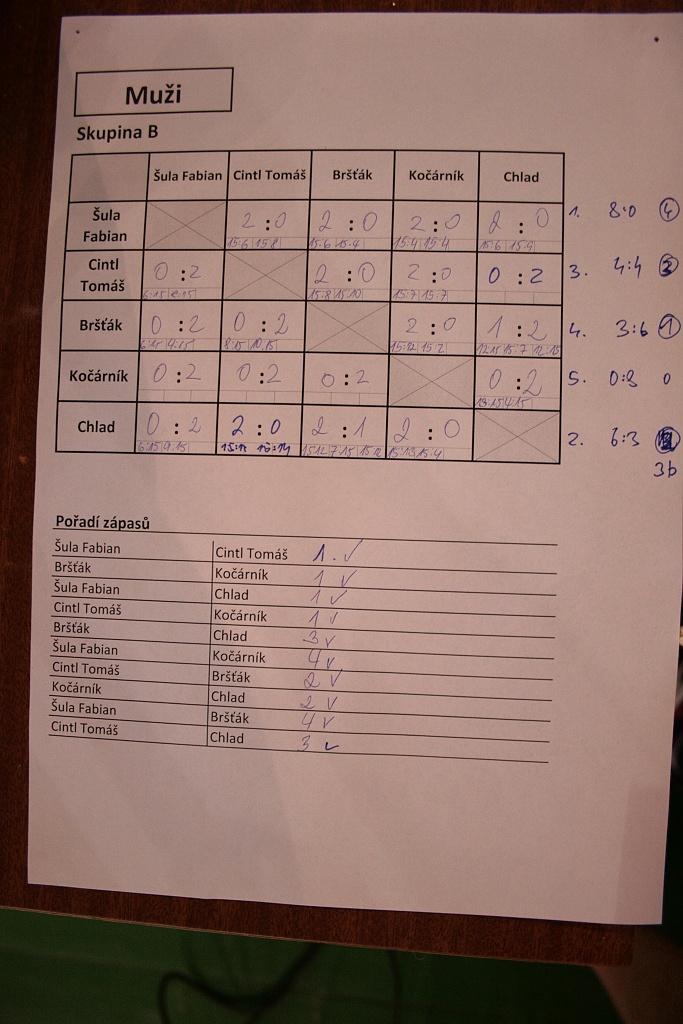 Muži
Skupina B
Šula Fabian Cintl Tomáš Bršťák Kočárník Chlad
Šula Fabian 2:0 2:0 2:0 2:0 1. 8:0 4
15:6 15:8 15:6 15:4 15:4 15:4 15:6 15:9
Cintl Tomáš 0:2 2:0 2:0 0:2 3. 4:4
15:8 15:10 15:7 15:7
Bršťák 0:2 0:2 2:0 1:2 4. 3:6 1
6:15 4:15 8:15 10:15 15:12 15:2 12:15 15:7 12:15
Kočárník 0:2 0:2 0:2 0:2 5. 0:8 0
13:15 4:15
Chlad 0:2 2:0 2:1 2:0 2. 6:3
6:15 9:15 15:12 7:15 15:12 15:13 15:4
3b
Pořadí zápasů
Šula Fabian Cintl Tomáš 1. ✓
Bršťák Kočárník 1 ✓
Šula Fabian Chlad 1 ✓
Cintl Tomáš Kočárník 1 ✓
Bršťák Chlad 3 ✓
Šula Fabian Kočárník 4 ✓
Cintl Tomáš Bršťák 2 ✓
Kočárník Chlad 2 ✓
Šula Fabian Bršťák 4 ✓
Cintl Tomáš Chlad 3 ✓